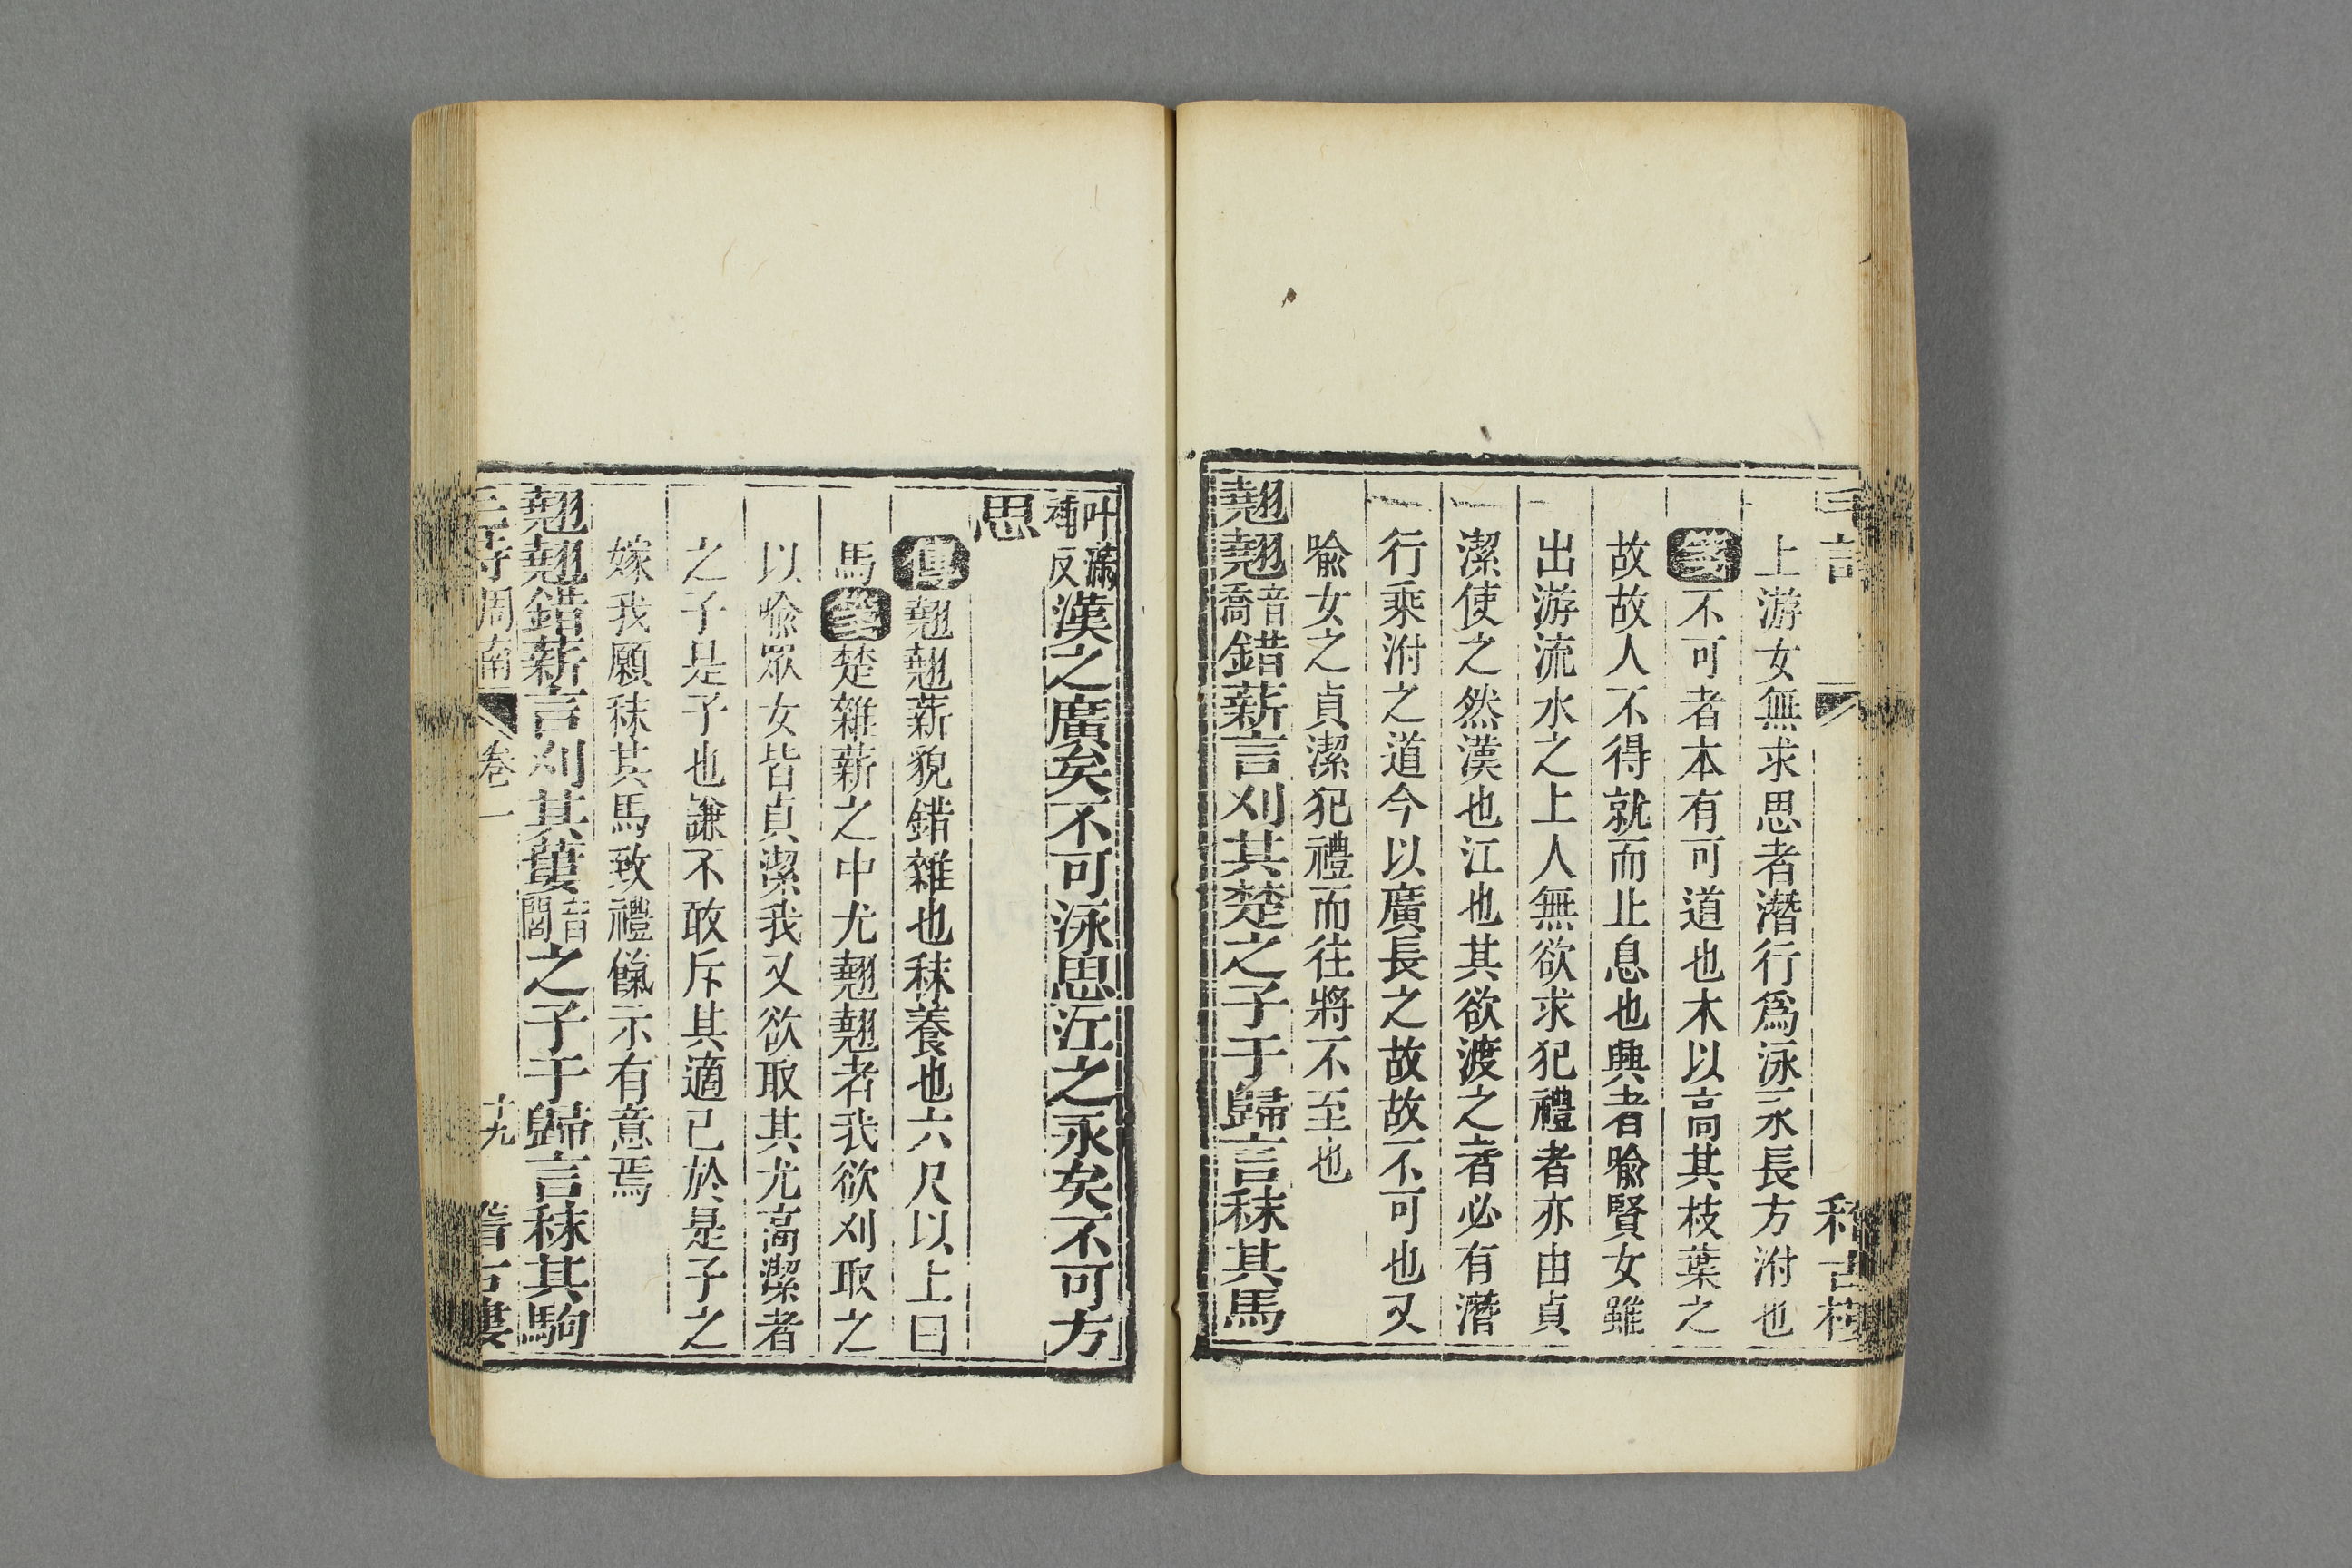 上游女無求思者潛行爲泳永長方泭也
箋不可者本有可道也木以高其枝葉之
故故人不得就而止息也興者喻賢女雖
出游流水之上人無欲求犯禮者亦由貞
潔使之然漢也江也其欲渡之者必有潛
行乘泭之道今以廣長之故故不可也又
喻女之貞潔犯禮而往將不至也
翹翹音喬錯薪言刈其楚之子于歸言秣其馬
叶滿補反漢之廣矣不可泳思江之永矣不可方
思
傳翹翹薪貌錯雜也秣養也六尺以上曰
馬箋楚雜薪之中尤翹翹者我欲刈取之
以喻眾女皆貞潔我又欲取其尤高潔者
之子是子也謙不敢斥其適己於是子之
嫁我願秣其馬致禮餼示有意焉
翹翹錯薪言刈其蔞音閭之子于歸言秣其駒
毛詩周南 卷一 十九 稽古樓